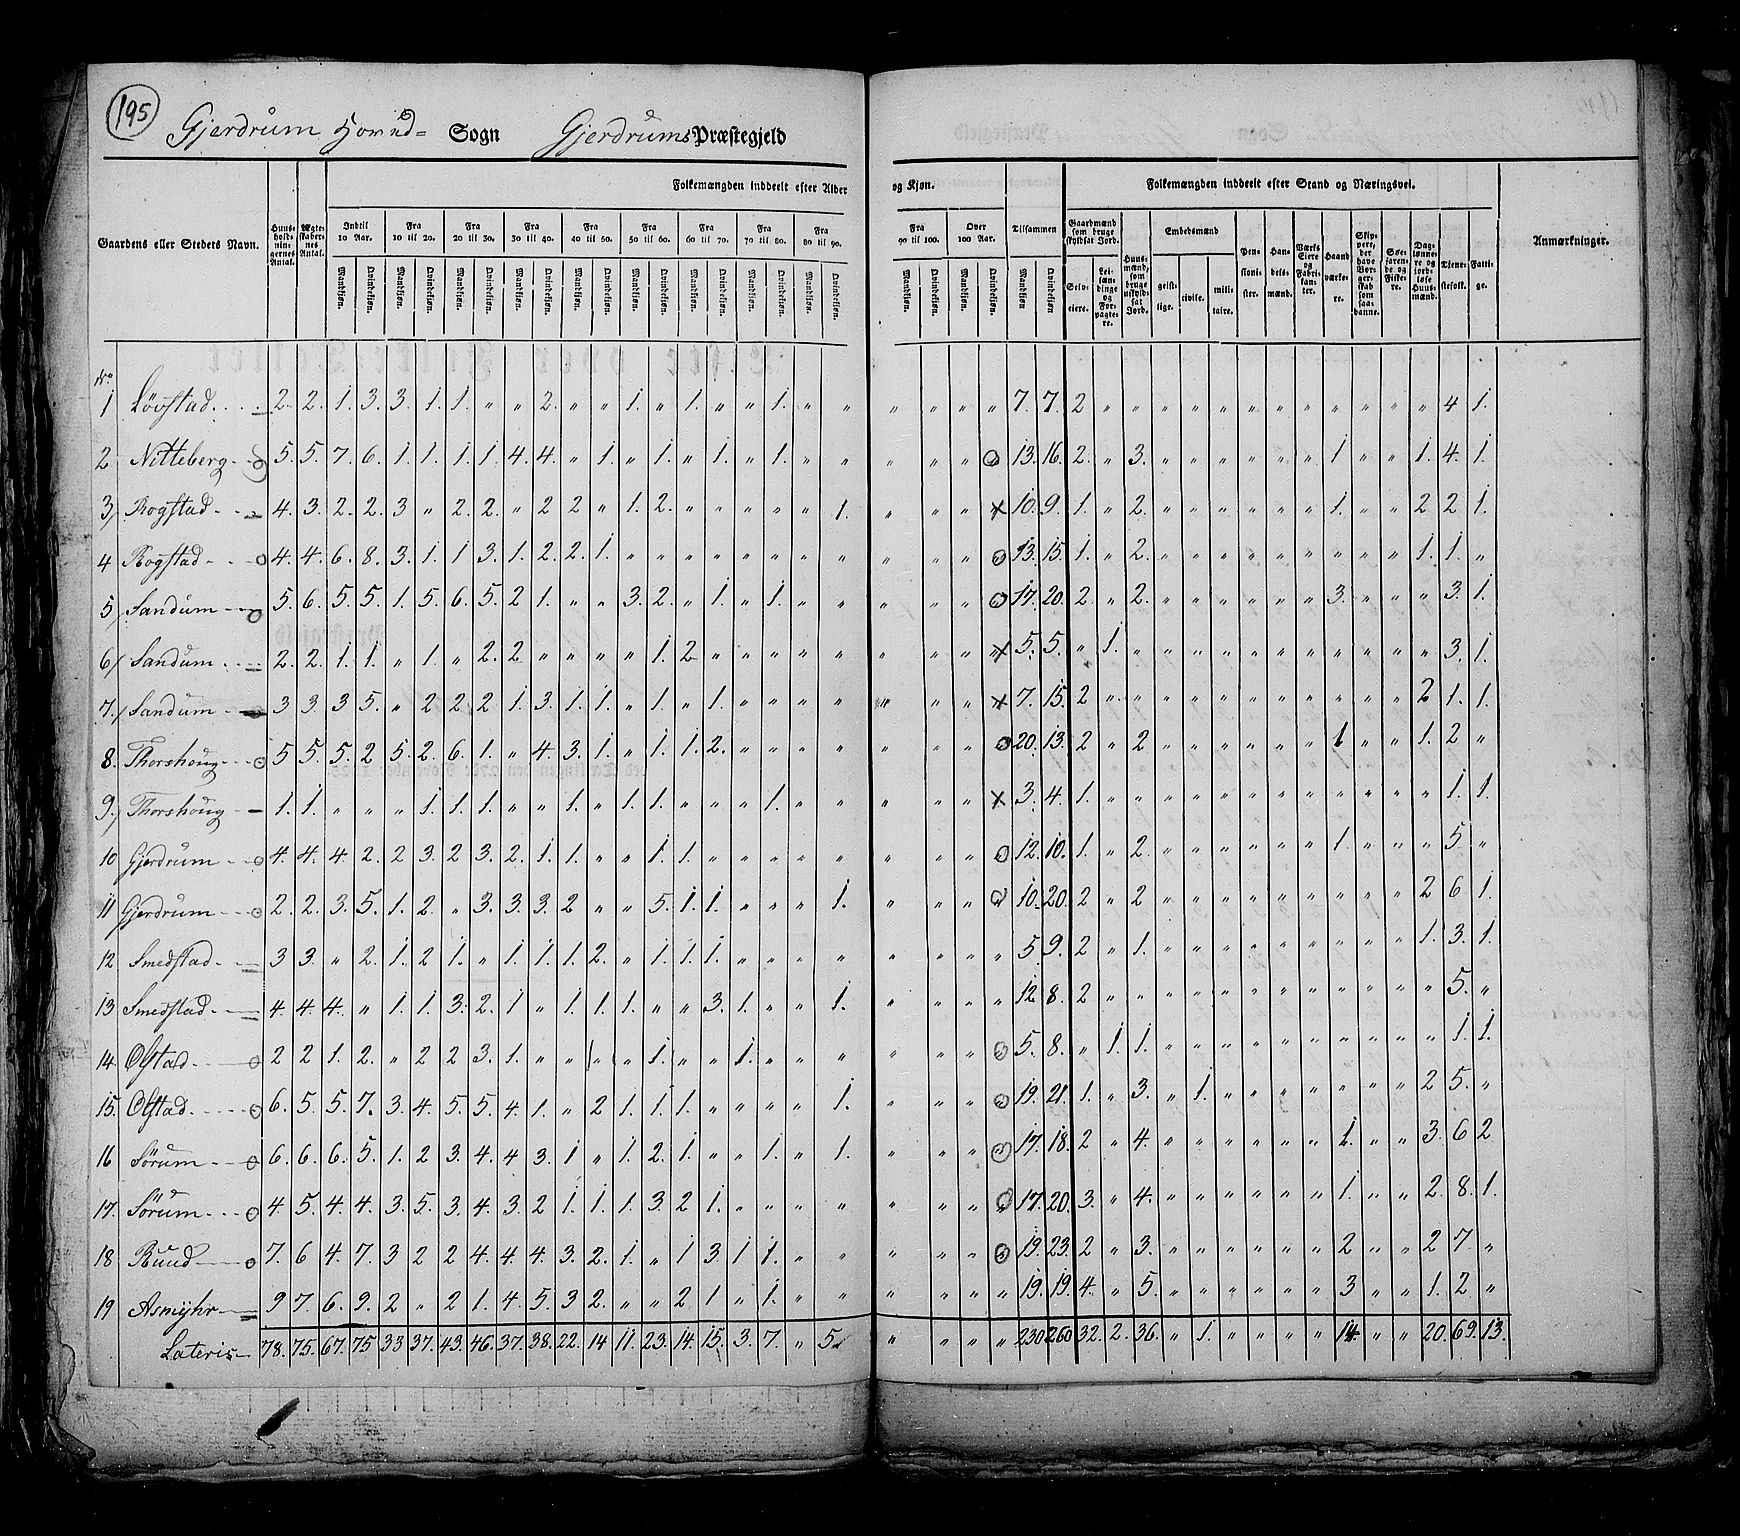 195
Gjerdrum Hoved= Sogn Gjerdrums Præstegjeld
Gaardens eller Stedets Navn. Huusholdningernes Antal. Ægteskabernes Antal. Folkemængden inddeelt efter Alder og Kjøn. Tilsammen Folkemængden inddeelt efter Stand og Næringsvei. Anmærkninger.
Indtil 10 Aar. Fra 10 til 20. Fra 20 til 30. Fra 30 til 40. Fra 40 til 50. Fra 50 til 60. Fra 60 til 70. Fra 70 til 80. Fra 80 til 90. Fra 90 til 100. Over 100 Aar. Gaardmænd som bruge skyldsat Jord. Huusmænd, som bruge uskyldsat Jord. Embedsmænd Pensionister. Handelsmænd. Værks Eiere og Fabrikanter. Haandværkere. Skippere, der have Borgerskab som saadanne. Søefarende og Fiskere. Daglønnere og jordløse Huusmænd. Tjenestefolk. Fattige.
Mandkjøn. Qvindekjøn. Mandkjøn. Qvindekjøn. Mandkjøn. Qvindekjøn. Mandkjøn. Qvindekjøn. Mandkjøn. Qvindekjøn. Mandkjøn. Qvindekjøn. Mandkjøn. Qvindekjøn. Mandkjøn. Qvindekjøn. Mandkjøn. Qvindekjøn. Mandkjøn. Qvindekjøn. Mandkjøn. Qvindekjøn. Mandkjøn. Qvindekjøn. Selveiere. Leilændinge og Forpagtere. geistlige. civile. militaire.
No
1 Løvstad 2. 2. 1. 3. 3. 1. 1. " " 2. " " 1. " 1. " " 1. " " " " " " 7. 7. 2 " " " " " " " " " " " " 4 1.
2 Nitteberg 5. 5. 7. 6. 1. 1. 1. 1. 4. 4. " 1. " 1. " 1. " 1. " " " " " " 13. 16. 2. " 3. " " " " " " 1 " " 1. 4. 1
3 Rogstad 4. 3. 2. 2. 3 " 2. 2. " 2 2 " 1. 2. " " " " " 1. " " " × 10. 9. 1. " 2. " " " " " " 1. " " 2 2 1
4 Rogstad 4. 4. 6. 8. 3. 1. 1 3. 1. 2. 2. 1. " " " " " " " " " " " " 13. 15. 1. " 2. " " " " " " " " " 1. 1. "
5 Sandum 5. 6. 5. 5. 1. 5. 6. 5. 2 1. " " 3. 2. " 1. " 1. " " " " " " 17. 20. 2. " 2. " " " " " " 3. " " " 3. 1.
6 Sandum 2. 2. 1. 1. " 1. " 2. 2 " " " " 1. 2 " " " " " " " " × 5. 5. " 1. " " " " " " " " " " " 3. 1.
7. Sandum 3 3. 3 5. " 2 2 2 1. 3. 1. 1. " 1. " 1. " " " " " " " × 7. 15. 2 " " " " " " " " " " " 2 1. 1.
8. Thorshoug 5 5. 5. 2 5. 2. 6. 1. " 4. 3. 1. " 1. 1. 2. " " " " " " " " 20. 13. 2 " 2 " " " " " " 1 " " 1. 2 "
9. Thorshoug 1. 1. " " " 1. 1. 1. " " 1. " 1. 1. " " " 1. " " " " " × 3. 4. 1. " " " " " " " " " " " " 1. 1.
10 Gjerdrum 4. 4. 4 2. 2 3. 2 3. 2. 1. 1. " " 1. 1. " " " " " " " " " 12. 10. 1. " 2. " " " " " " 1. " " " 5. "
11 Gjerdrum 2. 2. 3. 5. 1. 2. " 3. 3. 3. 2 " " 5. 1. 1. " " " 1. " " " " 10. 20. 2 " 2 " " " " " " " " " 2 6. 1.
12 Smedstad 3 3. " 2. 1. 2 1. " 1. 1. 1. 2. " 1. 1. 1. " " " " " " " " 5. 9. 2 " 1. " " " " " " " " " 1. 3. 1.
13 Smedstad 4. 4. 4. " 1. 1. 3. 2. 1 " 1. 1. 1. " " 3. 1. " " 1. " " " " 12 8. 2 " " " " " " " " " " " " 5. "
14. Olstad 2 2 1. 2. " 2 2 3. 1. " " " " 1. " " 1. " " " " " " " 5. 8. " 1 1. " " " " " " " " " " 1. 1.
15. Olstad 6. 5. 5. 7. 3. 4. 5. 5. 4 1. " 2 1. 1. 1. " " " " 1. " " " " 19. 21. 1. " 3. " 1. " " " " " " " 2 5. "
16 Sørum 6. 6. 6. 5. 1. 2 3. 4. 4 3. 1 " 1. 2. 1. " " 1. " 1. " " " " 17. 18. 2 " 4. " " " " " " 1. " " 3. 6 2
17. Sørum 4 5. 4. 4. 3. 5. 3 4. 3. 2 1. 1. 1. 3. 2 1. " " " " " " " " 17. 20. 3. " 4. " " " " " " 1. " " 2. 8. 1.
18 Ruud 7. 6 4. 7. 3 2 2 4. 4. 4. 3. 2. 1. " 1 3. 1 1. " " " " " " 19. 23. 2 " 3. " " " " " " 2 " " 2 7. "
19 Asmyhr 9 7. 6. 9. 2 " 2 1. 4. 5. 3 2. " " 2 1 " 1. " " " " " " 19. 19. 4. " 5. " " " " " " 3 " " 1. 2. "
Lateris 78. 75. 67. 75 33 37. 43. 46. 37. 38. 22. 14 11. 23. 14. 15. 3. 7. " 5. " " " " 230 260 32. 2. 36. " 1. " " " " 14 " " 20. 69. 13.